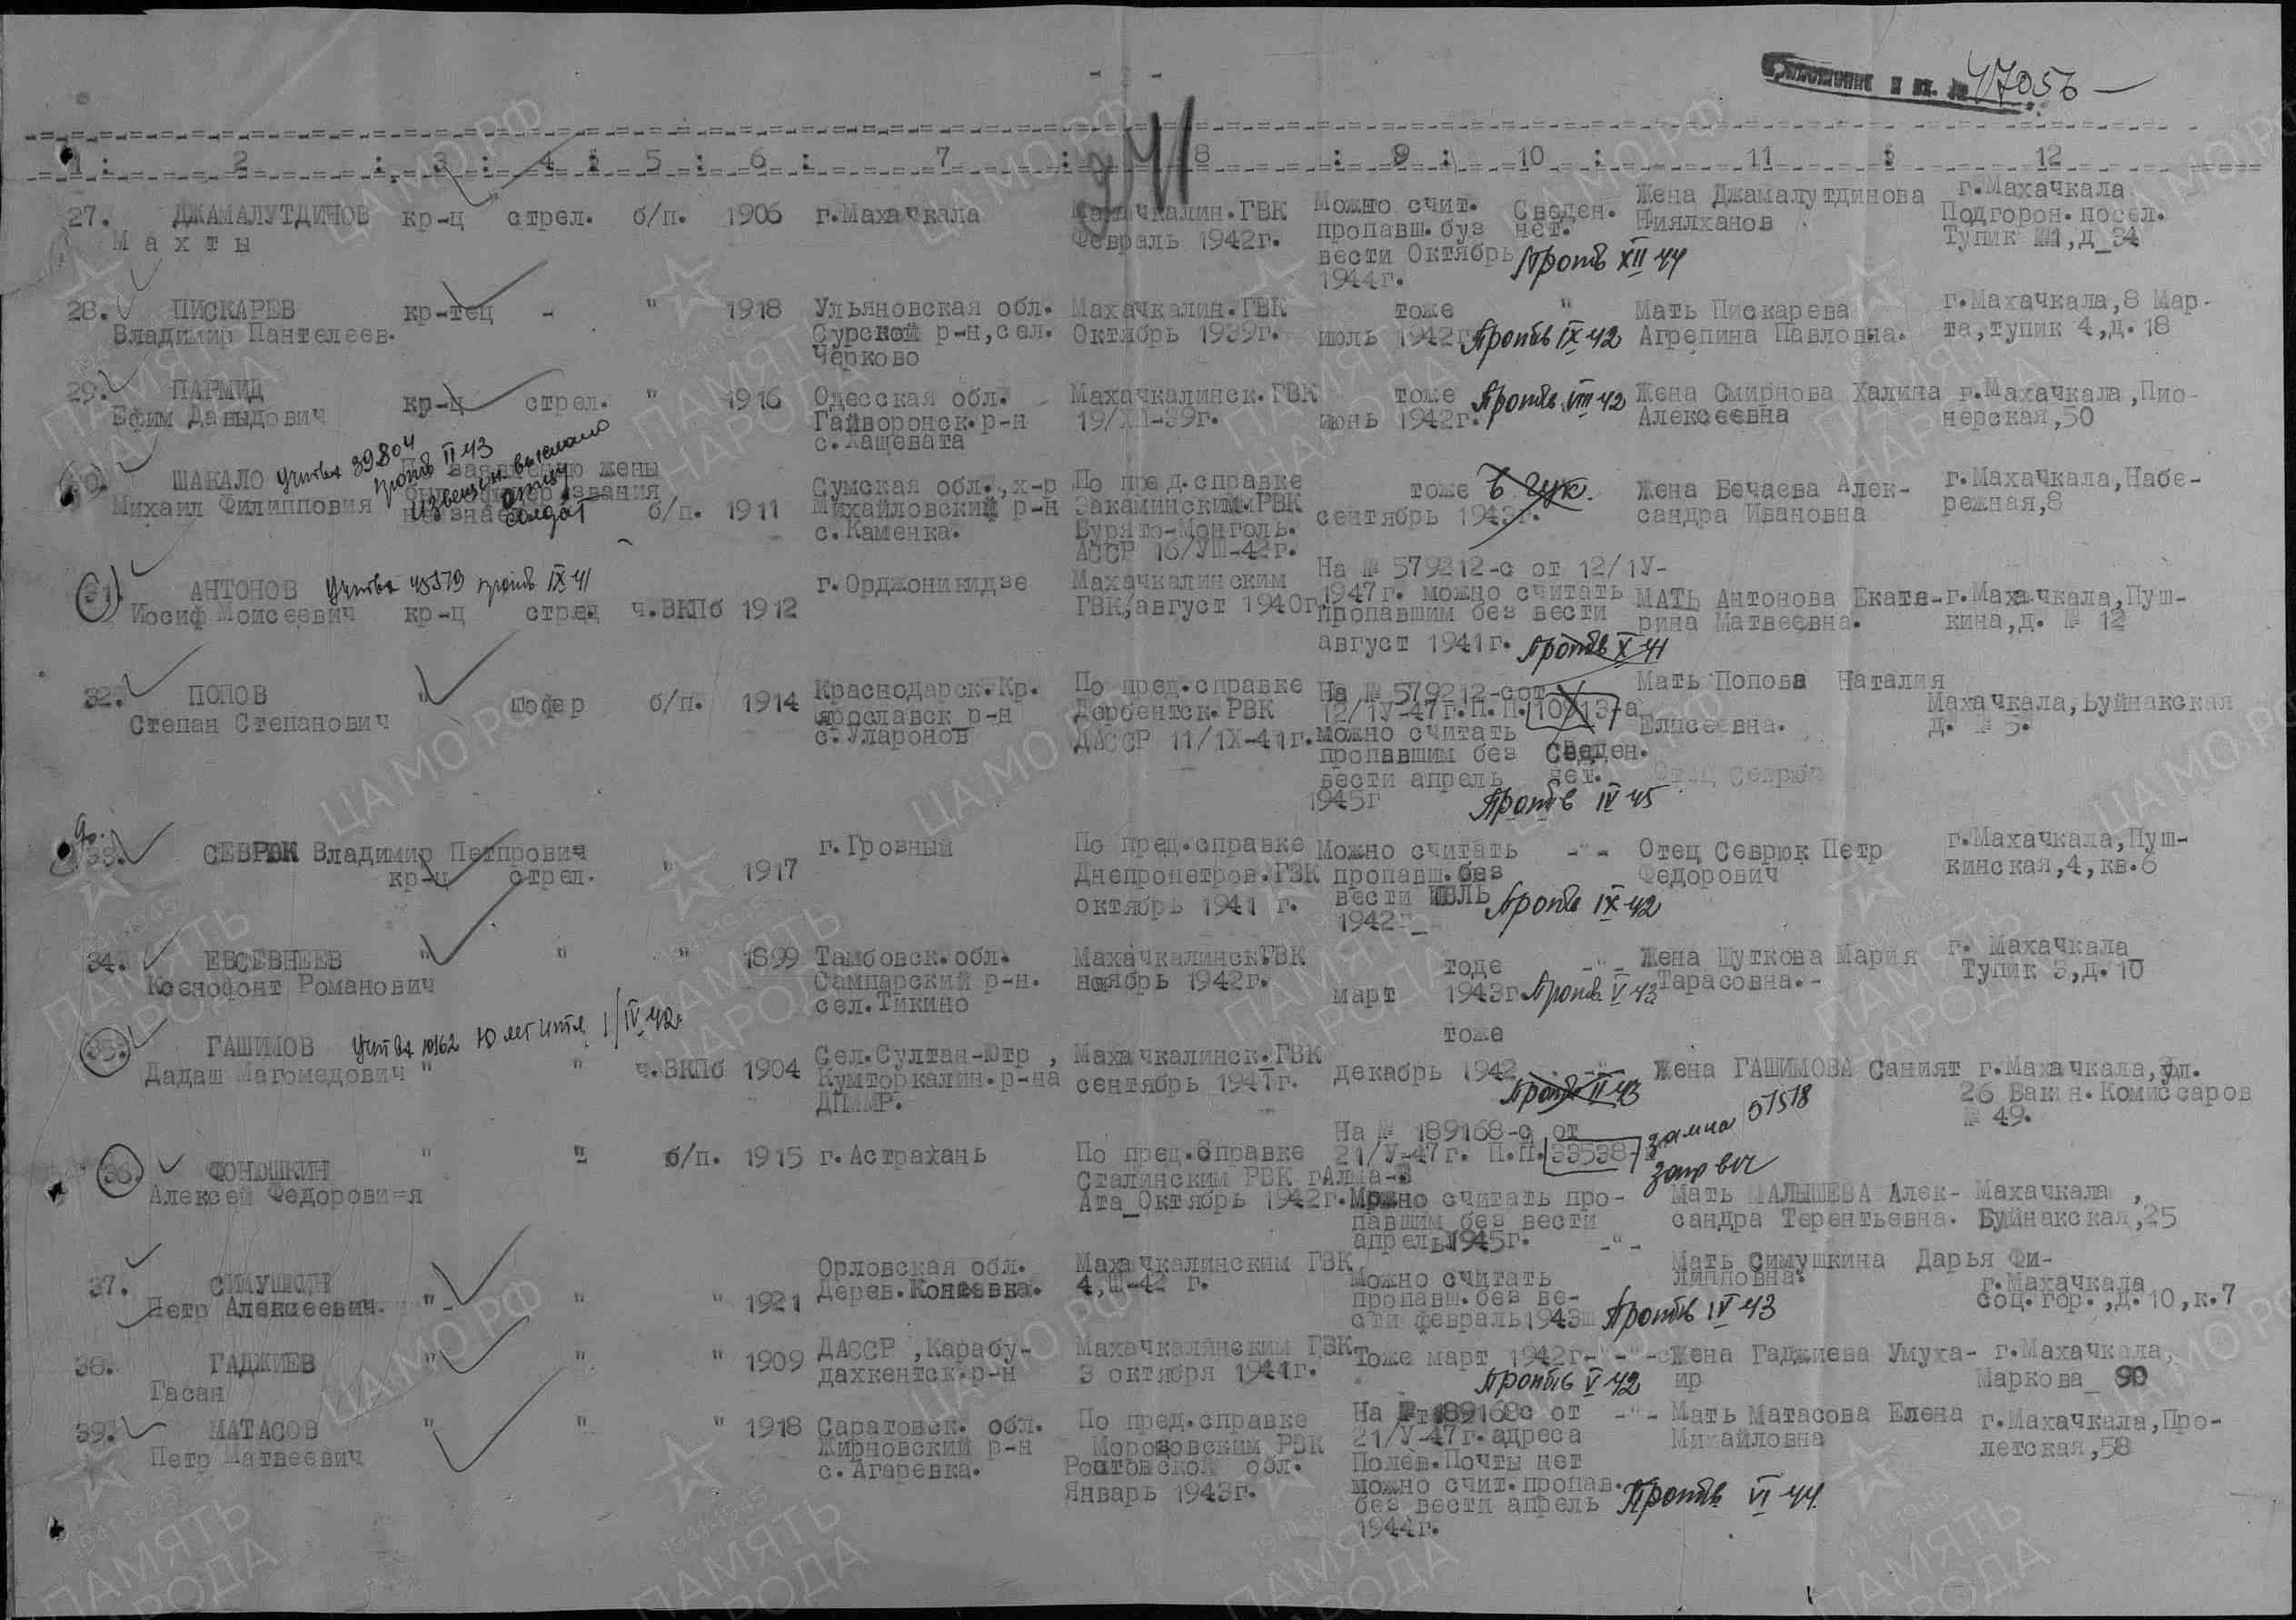 47056 —
1 : 2 : 3 : 4 : 5 : 6 : 7 : 8 : 9 : 10 : 11 : 12
241
27. ДЖАМАЛУТДИНОВ кр-ц стрел. б/п. 1906 г.Махачкала Махачкалин.ГВК Можно счит. Сведен. Жена Джамалутдинова г.Махачкала
Махты Февраль 1942г. пропавш.буз нет. Ниялханов Подгорон.посел.
вести Октябрь Проп б/в XII 44 Тупик №1,д_34
1944г.
28. ПИСКАРЕВ кр-тец - " 1918 Ульяновская обл. Махачкалин.ГВК тоже " Мать Пискарева г.Махачкала,8 Мар-
Владимир Пантелеев. Сурский р-н,сел. Октябрь 1939г. июль 1942г. Проп б/в IX 42 Агрепина Павловна. та,тупик 4,д.18
Черково
29. ПАРМИД кр-ц стрел. " 1916 Одесская обл. Махачкалинск.ГВК тоже Проп б/в VIII 42 Жена Смирнова Халина г.Махачкала,Пио-
Ефим Давыдович Гайворонск.р-н 19/XII-39г. июнь 1942г. Алексеевна нерская,50
с.Хащевата
30. ШАКАЛО Учтен 39804 проп б/в II 43 По заявлению жены Сумская обл.,х-р По пред.справке тоже Жена Бечаева Алек- г.Махачкала,Набе-
Михаил Филипповия извещен. выслано звания не знает солдат б/п. 1911 Михайловский р-н Закаминским РВК сентябрь 1943г. сандра Ивановна режная,8
с.Каменка. Бурято-Монголь.
АССР 16/УШ-42г.
31. АНТОНОВ Учтен 45579 проп б/в IX 41 г.Орджоникидзе Махачкалинским На № 579212-с от 12/1У-
Иосиф Моисеевич кр-ц стрел ч.ВКПб 1912 ГВК,август 1940г. 1947г. можно считать МАТЬ Антонова Екате- г.Махачкала,Пуш-
пропавшим без вести рина Матвеевна. кина,д. № 12
август 1941г. Проп б/в X 41
32. ПОПОВ " шофер б/п. 1914 Краснодарск.Кр. По пред.справке На № 579212-с от Мать Попова Наталия
Степан Степанович ярославск р-н Дербентск.РВК 12/1У-47г.П.П. Елисеевна. Махачкала,Буйнакская
с.Уларонов ДАССР 11/1Х-41г. можно считать д. № 5.
пропавшим без Сведен.
вести апрель нет. Отец Севрюк
1945г Проп б/в IV 45
33. СЕВРЮК Владимир Петпрович г.Грозный По пред.справке Можно считать -"- Отец Севрюк Петр г.Махачкала,Пуш-
кр-ц стрел. " 1917 Днепропетров.ГВК пропавш.без Федорович кинская,4,кв.6
октябрь 1941 г. вести июль Проп б/в IX 42
1942г_
34. ЕВСЕВНЕЕВ " " " 1899 Тамбовск.обл. Махачкалинск ГВК тоде -"- Жена Шуткова Мария г. Махачкала
Ксенофонт Романович Сампарский р-н. ноябрь 1942г. март 1943г. Проп б/в V 43 Тарасовна.- Тупик 3,д.10
сел.Тикино
35. ГАШИМОВ Учтен 10162 10 лет итл 1/IV 42г. тоже
Дадаш Магомедович " " ч.ВКПб 1904 Сел.Султан-Ютр , Махачкалинск.ГВК декабрь 1942 -"- Жена ГАШИМОВА Саният г.Махачкала,ул.
Кумторкалин.р-на сентябрь 1941г. Проп б/в II 43 26 Бакин.Комиссаров
№ 49.
36. ФОНЮШКИН " " б/п. 1915 г.Астрахань По пред.справке На № 189168-с от 21/У-47г. П.П. 33538-
Алексей Федорови=я Сталинским РВК гАлма-
Ата_Октябрь 1942г. Можно считать про- Мать МАЛЫШЕВА Алек- Махачкала ,
павшим без вести сандра Терентьевна. Буйнакская,25
апрель 1945г. -"-
37. СИМУШКИН Орловская обл. Махачкалинским ГВК Можно считать Мать Симушкина Дарья Фи-
Петр Алексеевич. " " " 1921 Дерев.Консевка. 4,Ш-42 г. пропавш.без ве- липповна. г.Махачкала
сти февраль 1943ш Проп б/в IV 43 соц.гор.,д.10,к.7
38. ГАДЖИЕВ " " " 1909 ДАССР ,Карабу- Махачкалинским ГВК Тоже март 1942г- -"- Жена Гаджиева Умуха- г.Махачкала,
Гасан дахкентск.р-н 3 октября 1941г. Проп б/в V 42 ир Маркова_ 90
39. МАТАСОВ " " " 1918 Саратовск. обл. По пред.справке На № 189168с от -"- Мать Матасова Елена г.Махачкала,Про-
Петр Матвеевич Жирновский р-н Морозовским РВК 21/У-47г.адреса Михайловна летская,58
с.Агаревка. Ростовской обл. Полев.Почты нет
Январь 1943г. можно счит.пропав.
без вести апрель Проп б/в VI 44
1944г.